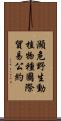 瀕危野生動
植物種國際
貿易公約